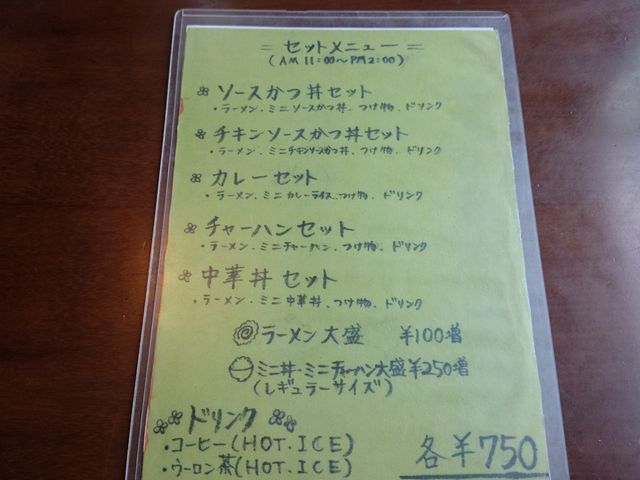 = セットメニュー =
(AM 11:00〜PM 2:00)
ソースかつ丼セット
・ラーメン・ミニソースかつ丼、つけ物、ドリンク
チキンソースかつ丼セット
・ラーメン・ミニチキンソースかつ丼、つけ物、ドリンク
カレーセット
・ラーメン、ミニカレーライス、つけ物、ドリンク
チャーハンセット
・ラーメン・ミニチャーハン、つけ物、ドリンク
中華丼セット
・ラーメン・ミニ中華丼、つけ物、ドリンク
ラーメン大盛 ¥100増
ミニ丼・ミニチャーハン大盛¥250増
(レギュラーサイズ)
ドリンク
・コーヒー(HOT.ICE)
・ウーロン茶(HOT.ICE)
各¥750